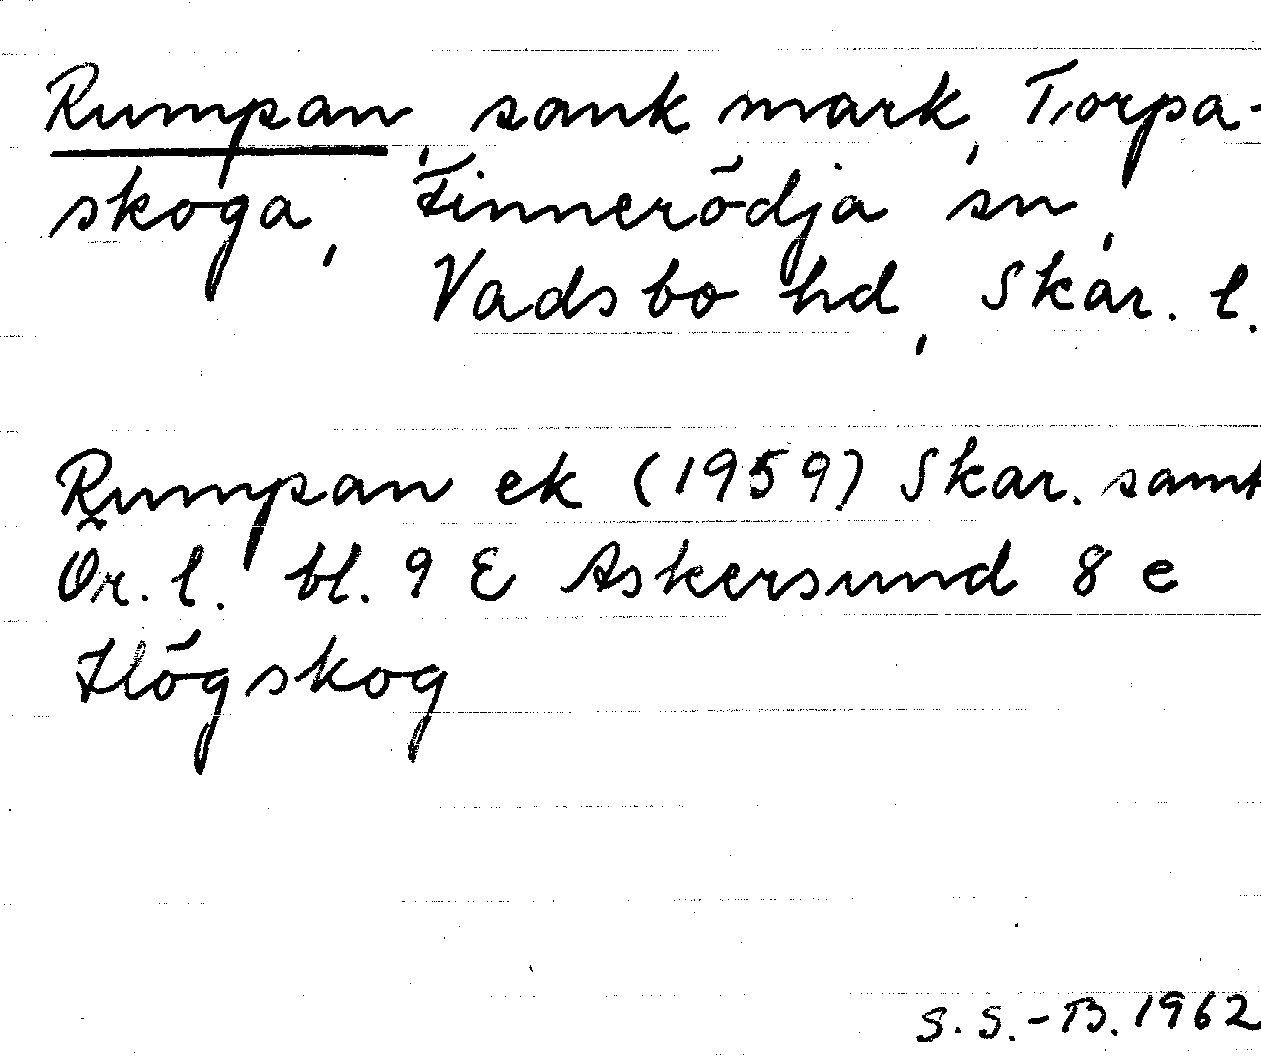 Rumpan, sank mark, Torpa-
skoga, Finnerödja sn,
Vadsbo hd, Skar. l.
Rumpan ek (1959) Skar. samt
Ör. l. bl. 9 E Askersund 8 e
Högskog
S. S.-B. 1962